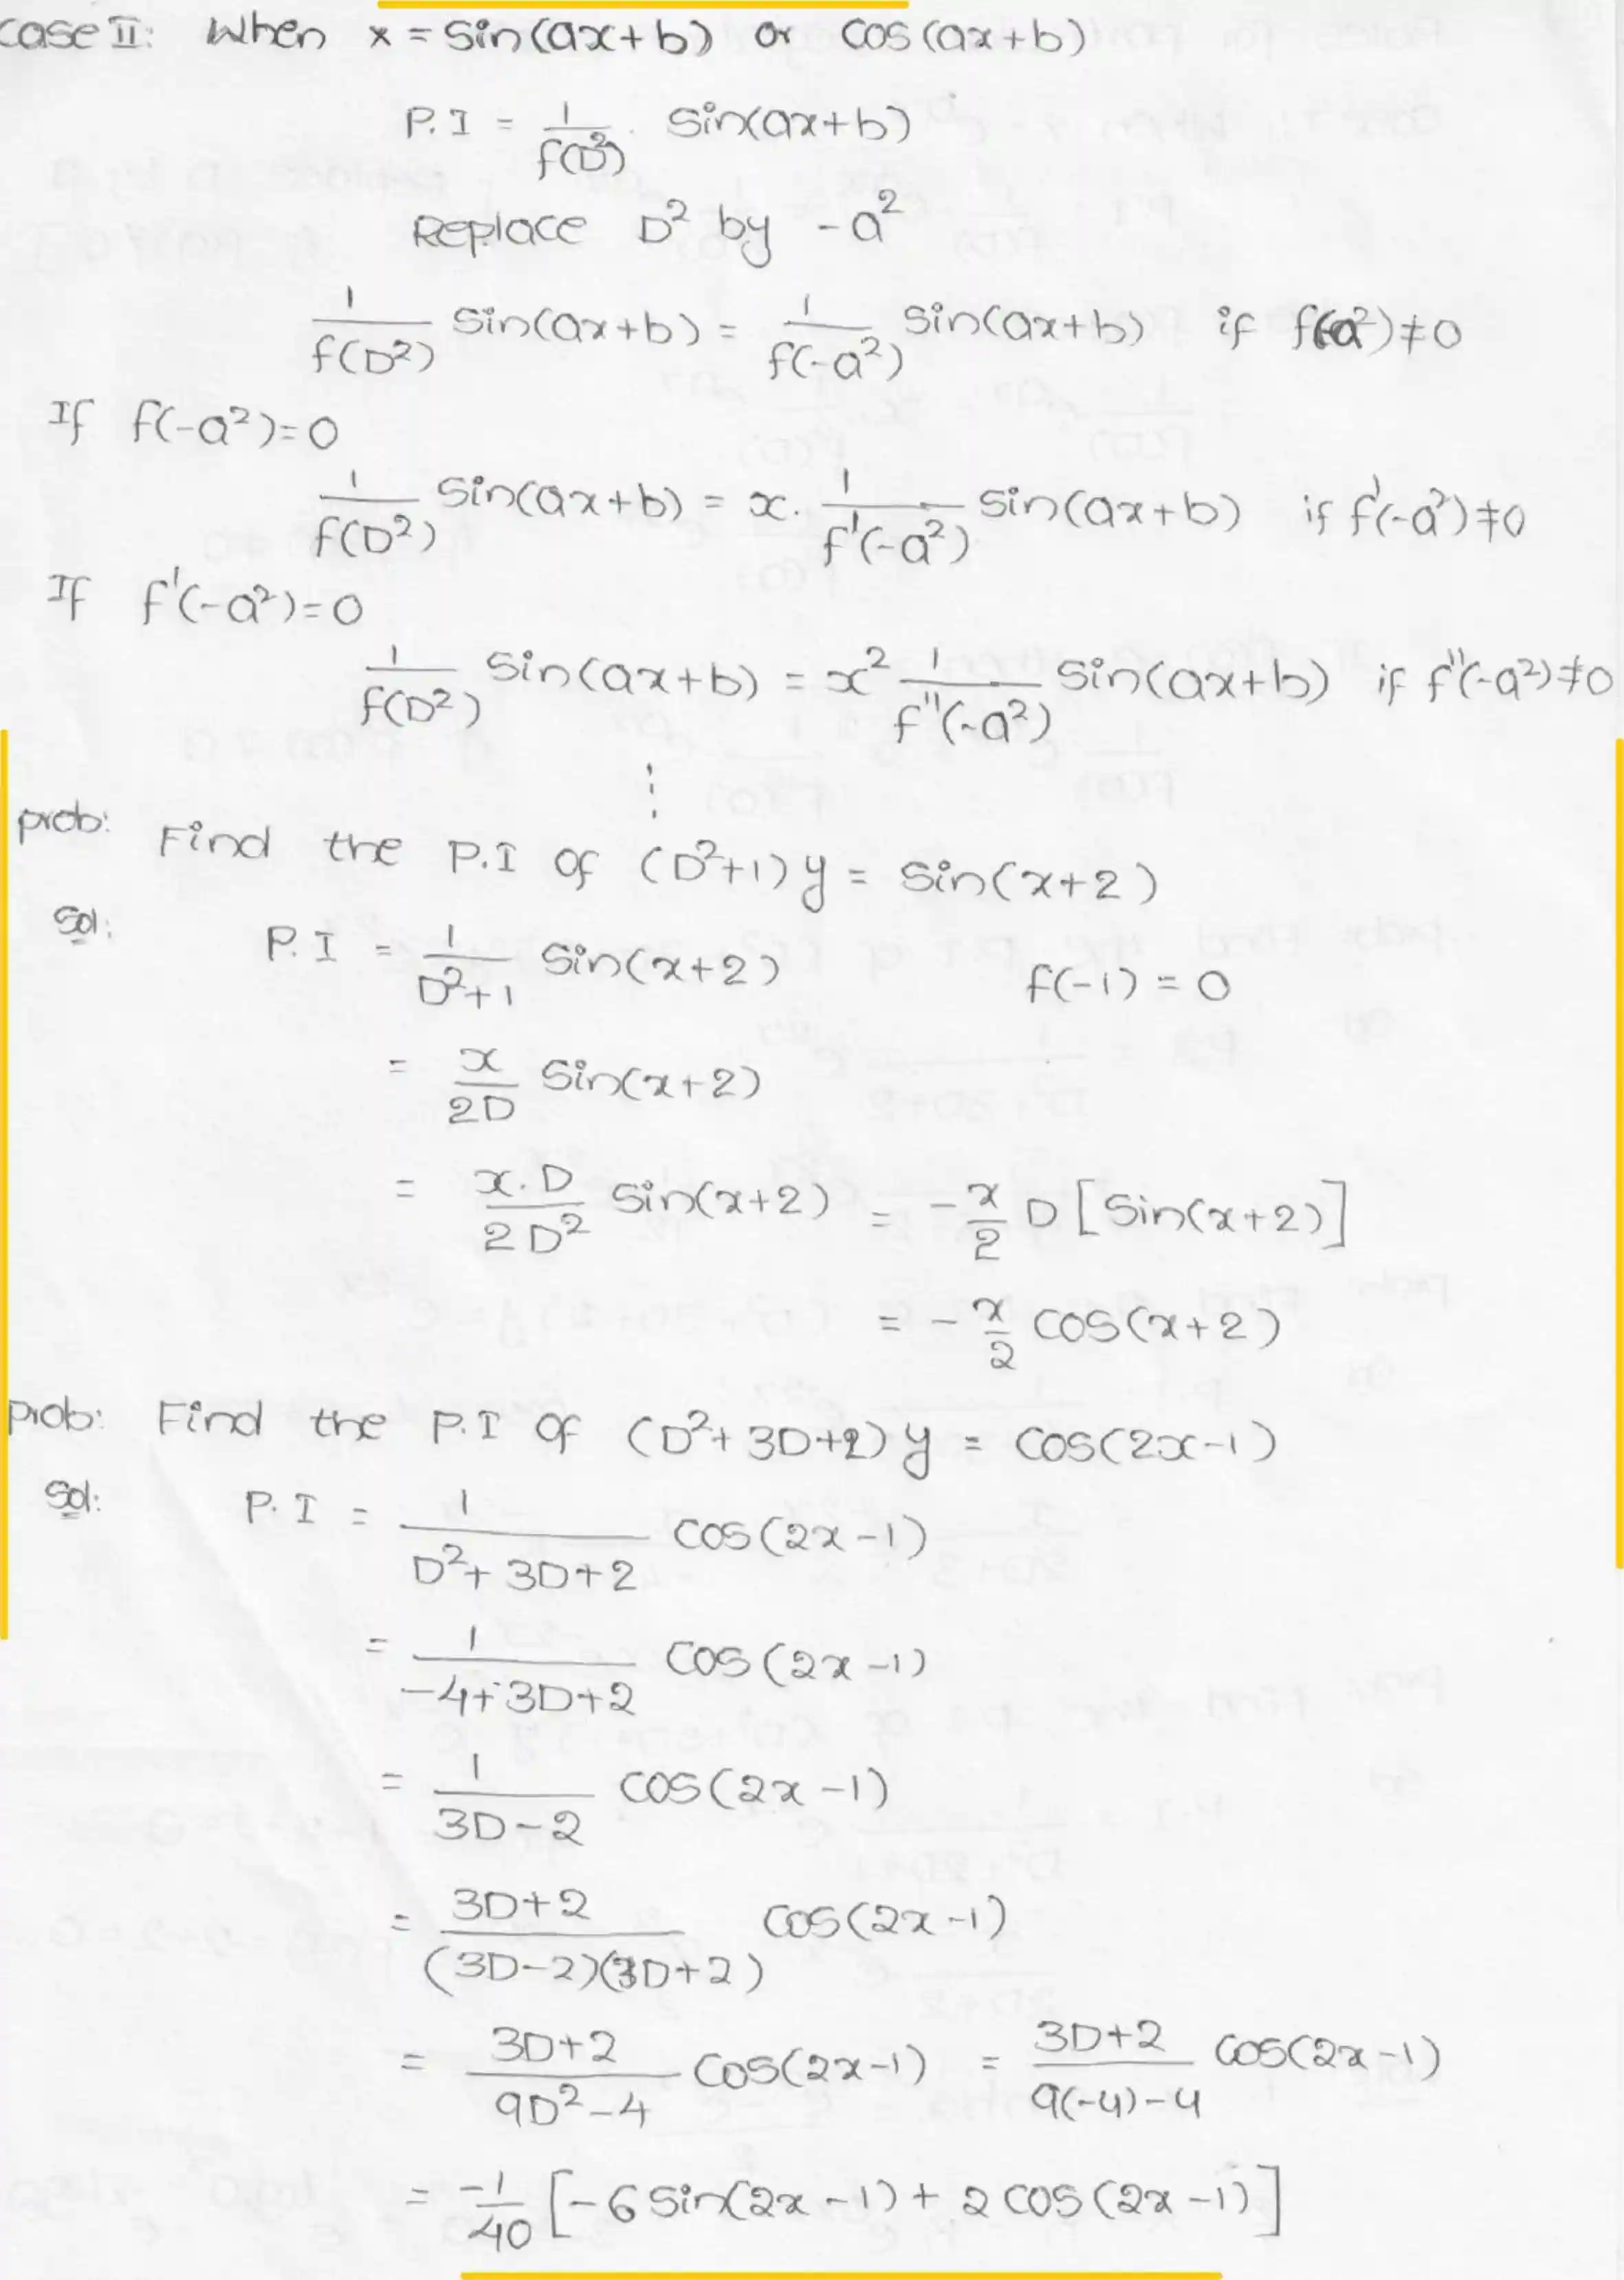 Case II: When x = Sin(ax+b) or Cos(ax+b)
P.I = 1/f(D²) Sin(ax+b)
Replace D² by -a²
1/f(D²) Sin(ax+b) = 1/f(-a²) Sin(ax+b) if f(-a²)≠0
If f(-a²)=0
1/f(D²) Sin(ax+b) = x. 1/f'(-a²) Sin(ax+b) if f'(-a²)≠0
If f'(-a²)=0
1/f(D²) Sin(ax+b) = x² 1/f''(-a²) Sin(ax+b) if f''(-a²)≠0
⋮
prob: Find the P.I of (D²+1)y = Sin(x+2)
Sol: P.I = 1/(D²+1) Sin(x+2) f(-1) = 0
= x/2D Sin(x+2)
= x.D/2D² Sin(x+2) = -x/2 D[Sin(x+2)]
= -x/2 Cos(x+2)
Prob: Find the P.I of (D²+3D+2)y = Cos(2x-1)
Sol: P.I = 1/(D²+3D+2) Cos(2x-1)
= 1/(-4+3D+2) Cos(2x-1)
= 1/(3D-2) Cos(2x-1)
= (3D+2)/((3D-2)(3D+2)) Cos(2x-1)
= (3D+2)/(9D²-4) Cos(2x-1) = (3D+2)/(9(-4)-4) Cos(2x-1)
= -1/40 [-6 Sin(2x-1) + 2 Cos(2x-1)]